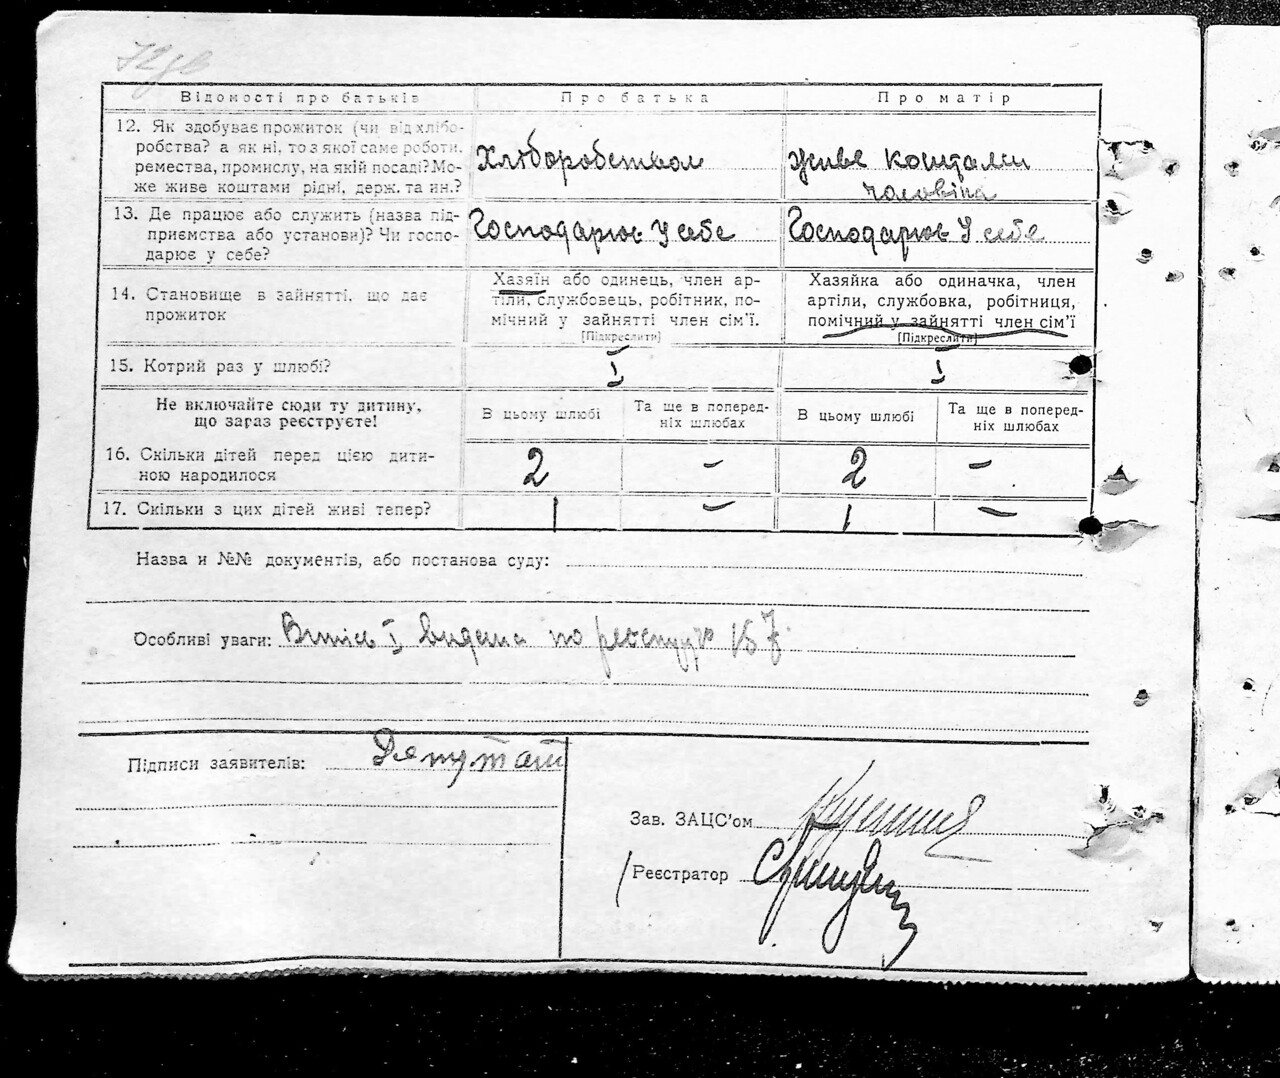 Відомості про батьків Про батька Про матір
12. Як здобуває прожиток (чи від хлібо-
робства? а як ні, то з якої саме роботи,
ремества, промислу, на якій посаді? Мо-
же живе коштами рідні, держ. та ин.?
Хліборобством
живе коштами
чоловіка
13. Де працює або служить (назва під-
приємства або установи)? Чи госпо-
дарює у себе?
Господарює У себе
Господарює У себе
14. Становище в зайнятті, що дає
прожиток
Хазяїн або одинець, член ар-
тіли, службовець, робітник, по-
мічний у зайнятті член сім'ї.
[Підкреслити]
Хазяйка або одиначка, член
артіли, службовка, робітниця,
помічний у зайнятті член сім'ї
[Підкреслити]
15. Котрий раз у шлюбі? I I
Не включайте сюди ту дитину,
що зараз реєструєте!
В цьому шлюбі
Та ще в поперед-
ніх шлюбах
В цьому шлюбі
Та ще в поперед-
ніх шлюбах
16. Скільки дітей перед цією дити-
ною народилося
2 – 2 –
17. Скільки з цих дітей живі тепер? 1 – 1 –
Назва и №№ документів, або постанова суду:
Особливі уваги: видана по реєстру
Підписи заявителів: Депутат
Зав. ЗАЦС'ом
Реєстратор